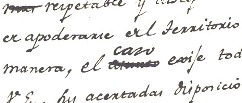 respetable y
er apoderarse del Territorio
manera, el caso exise tod
V.E. sus acertadas disposicio